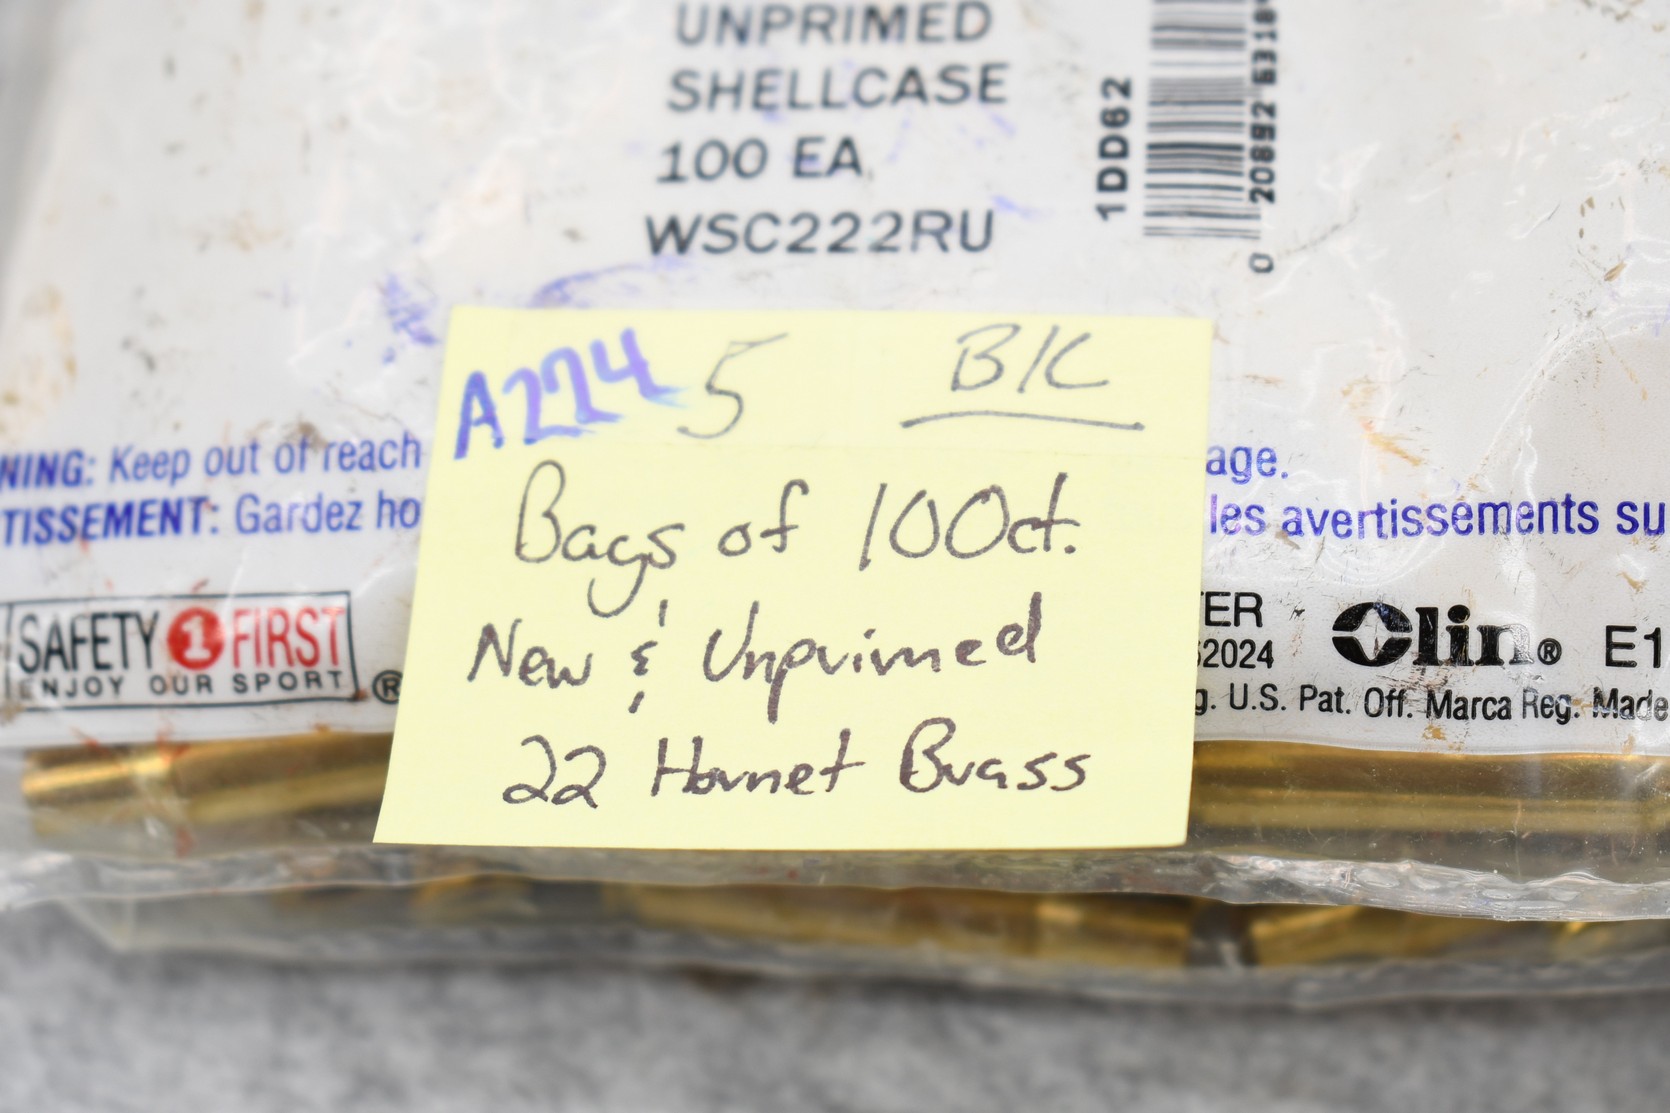 UNPRIMED
SHELLCASE
100 EA
WSC222RU
1DD62
0 20892 6318
A224 5 B/C
Bags of 100ct.
New & Unprimed
22 Hornet Brass
NING: Keep out of reach
age.
TISSEMENT: Gardez ho
les avertissements su
SAFETY 1 FIRST
ENJOY OUR SPORT ®
TER
62024
Olin® E1
g. U.S. Pat. Off. Marca Reg. Made